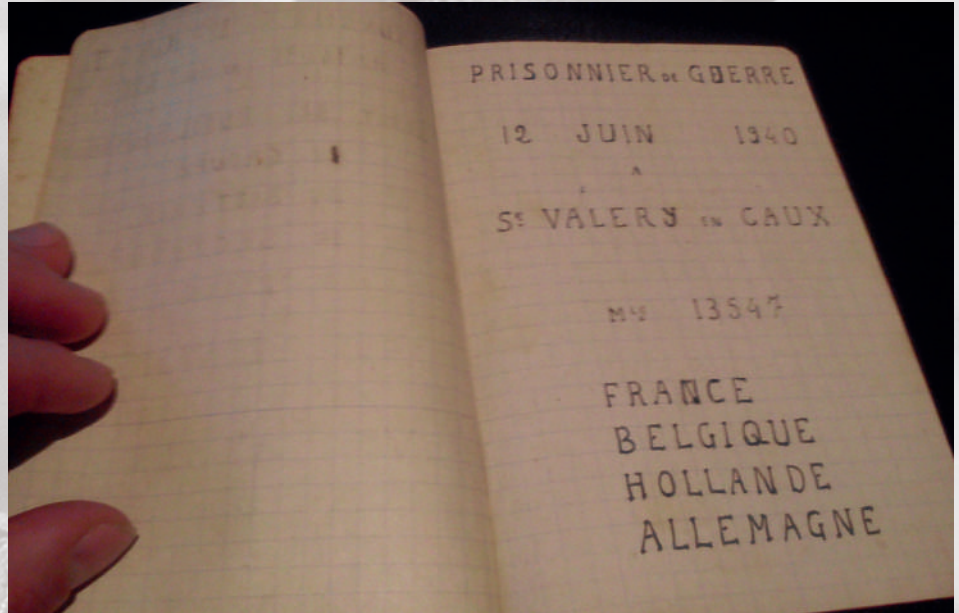 PRISONNIER DE GUERRE
12 JUIN 1940
A
St VALERY EN CAUX
Mle 13547
FRANCE
BELGIQUE
HOLLANDE
ALLEMAGNE